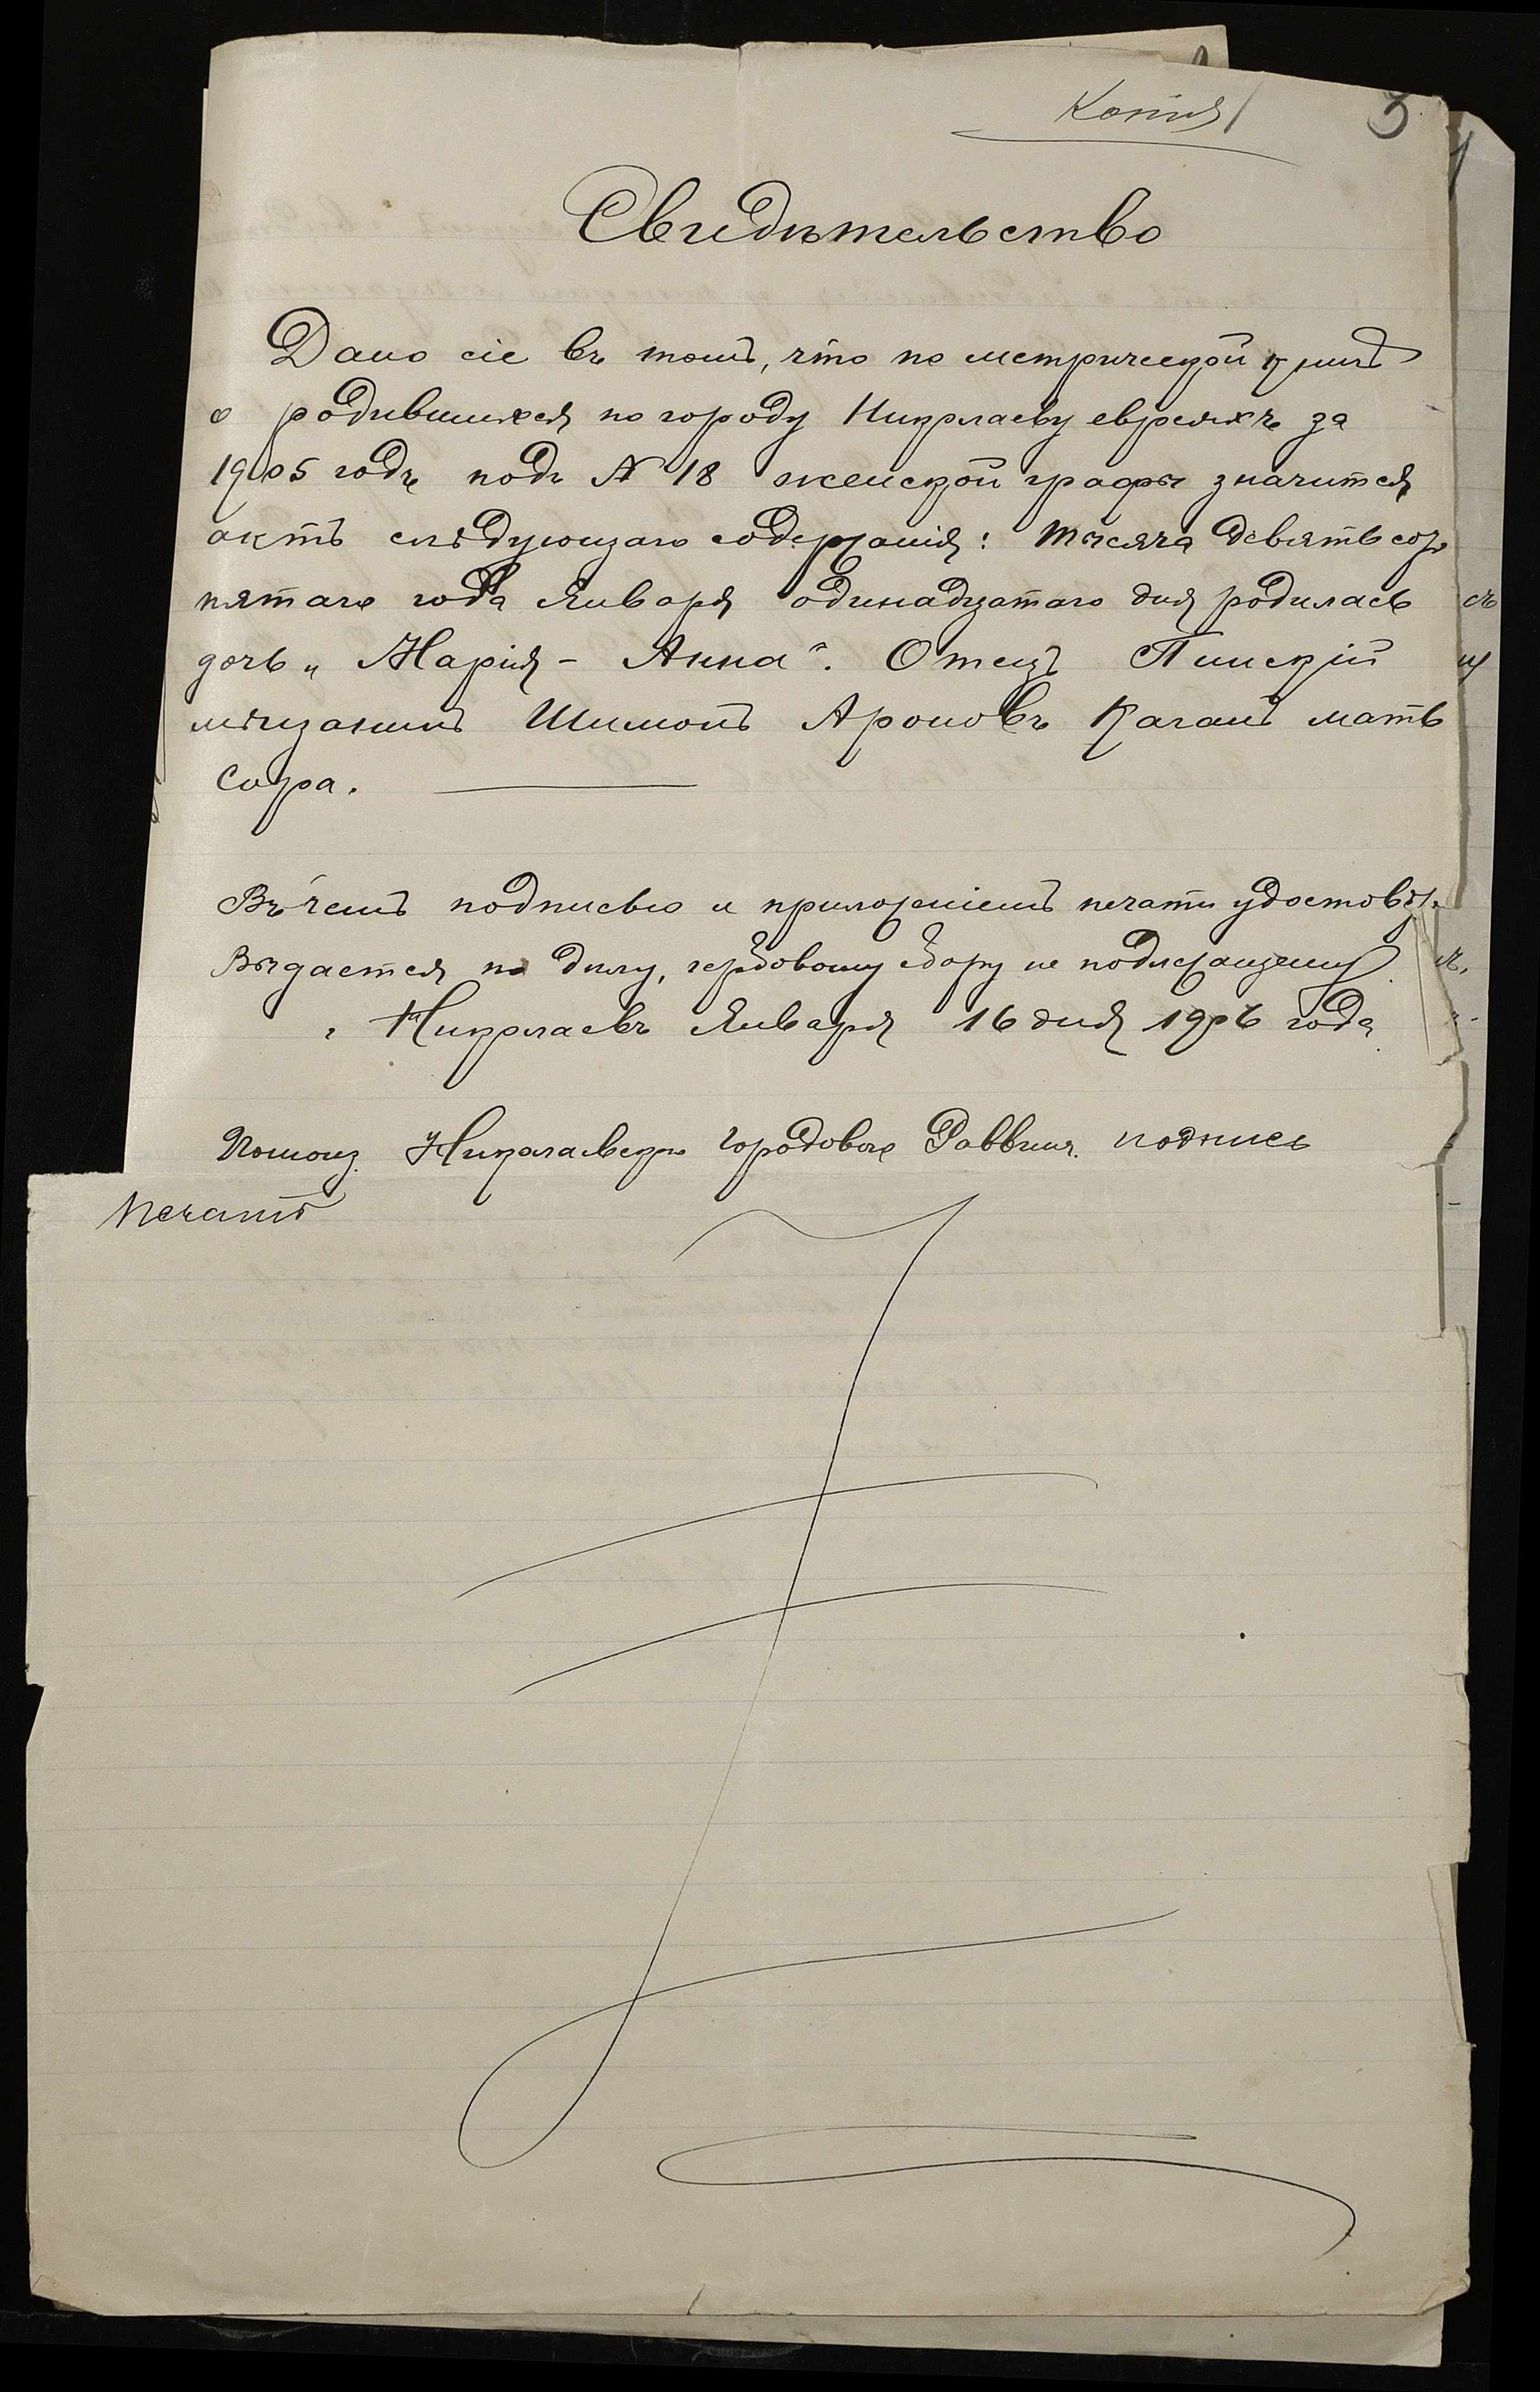 Копія
3
Свидѣтельство
Дано сіе въ томъ, что по метрической книгѣ
о родившихся по городу Николаеву евреяхъ за
1905 годъ подъ № 18 женской графы значится
актъ слѣдующаго содержанія: Тысяча девятьсотъ
пятаго года Января одинадцатаго дня родилась
дочь „Марія - Анна“. Отецъ Пинскій
мѣщанинъ Шимонъ Ароновъ Каганъ мать
Сора.
Въ чемъ подписью и приложеніемъ печати удостовѣр.
Выдается по дѣлу, гербовому сбору не подлежащему
г. Николаевъ Января 16 дня 1906 года
Помощ. Николаевскаго Городового Раввина. подпись
Печать